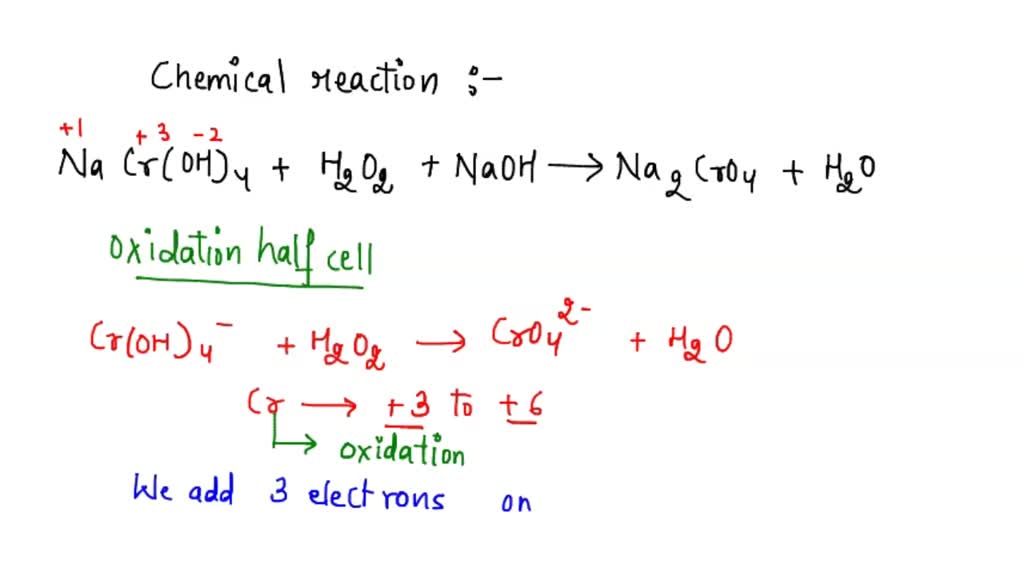 Chemical reaction :-
+1 +3 -2
Na Cr(OH)₄ + H₂O₂ + NaOH → Na₂CrO₄ + H₂O
oxidation half cell
Cr(OH)₄⁻ + H₂O₂ → CrO₄²⁻ + H₂O
Cr → +3 to +6
↳ oxidation
We add 3 electrons on